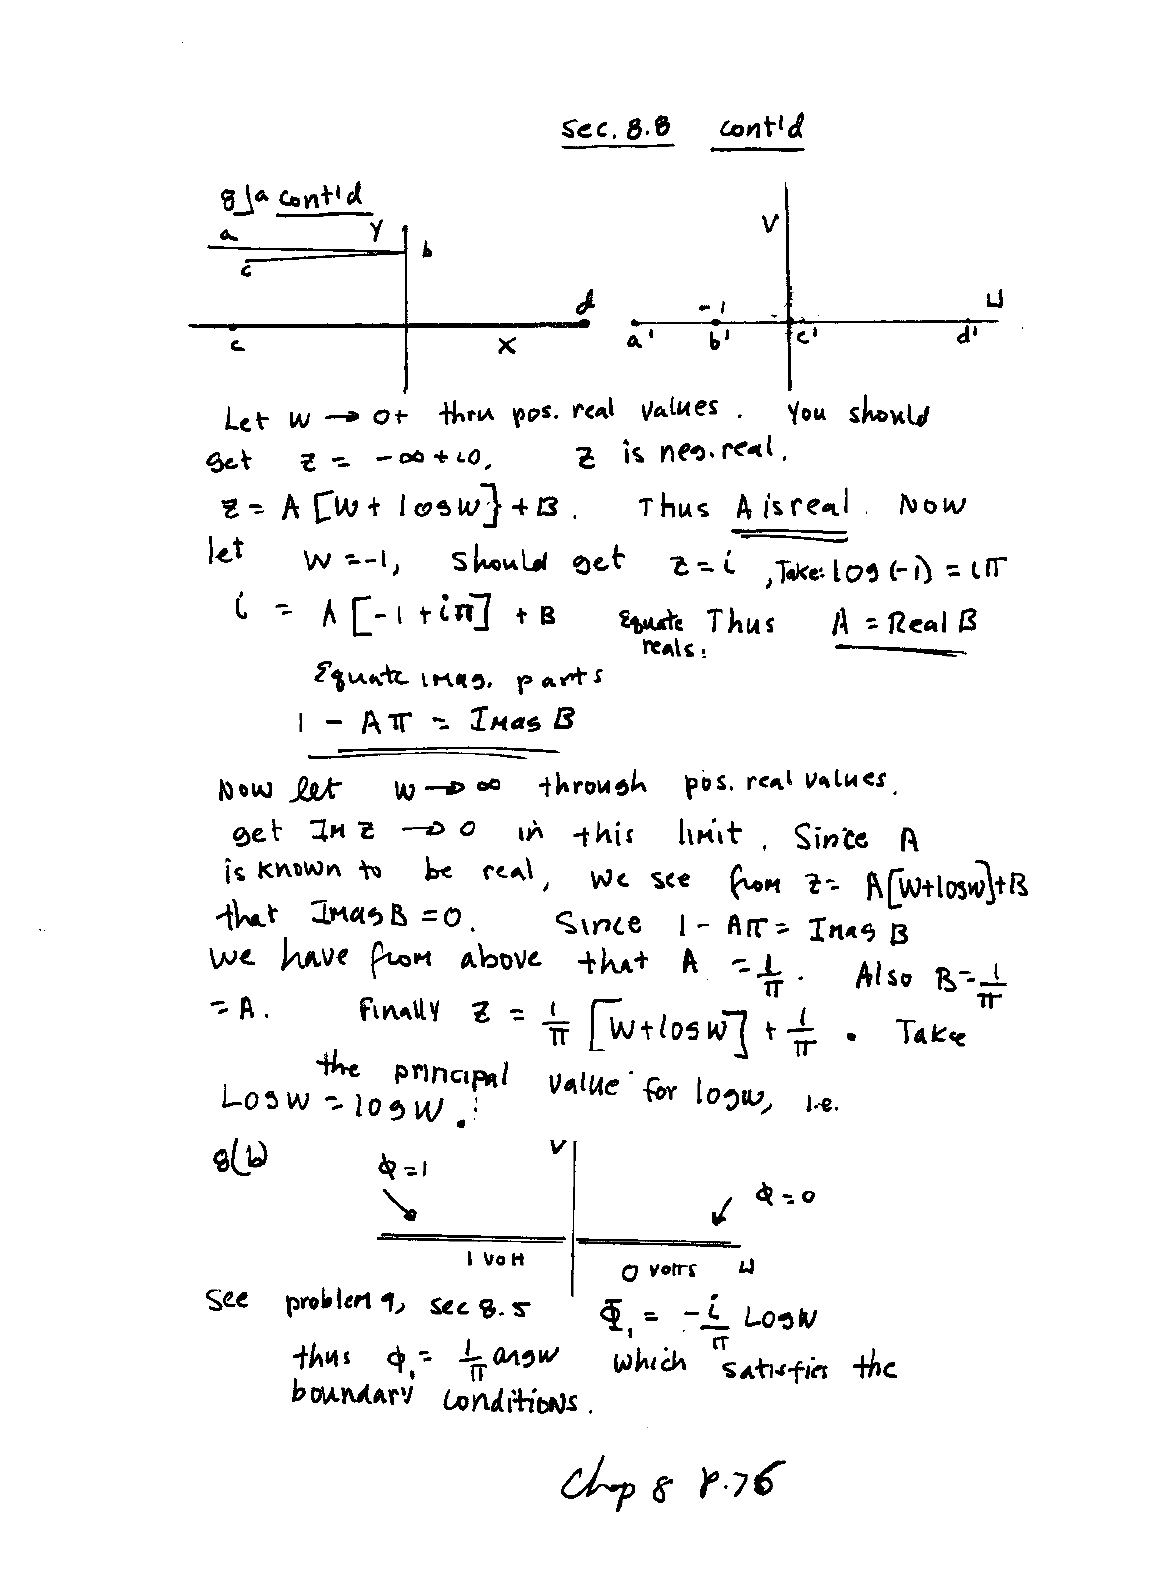 Sec. 8.8 cont'd
8]a cont'd
a
Y
b
c
d
c
X
V
-1
U
a'
b'
c'
d'
Let w → 0+ thru pos. real values. You should
get z = -∞ + i0, z is neg. real.
z = A [w + log w] + B. Thus A is real. Now
let w = -1, should get z = i, Take: log(-1) = iπ
i = A [-1 + iπ] + B Equate reals: Thus A = Real B
Equate imag. parts
1 - Aπ = Imag B
Now let w → ∞ through pos. real values.
get Im z → 0 in this limit. Since A
is known to be real, we see from z = A[w+log w]+B
that Imag B = 0. Since 1 - Aπ = Imag B
we have from above that A = 1/π. Also B = 1/π
= A. Finally z = 1/π [w + log w] + 1/π. Take
the principal value for log w, i.e.
Log w = log w.
8(b)
V
φ = 1
φ = 0
1 Volt
0 volts
U
See problem 9, sec 8.5 Φ₁ = -i/π Log w
thus φ₁ = 1/π arg w which satisfies the
boundary conditions.
Chap 8 P.76